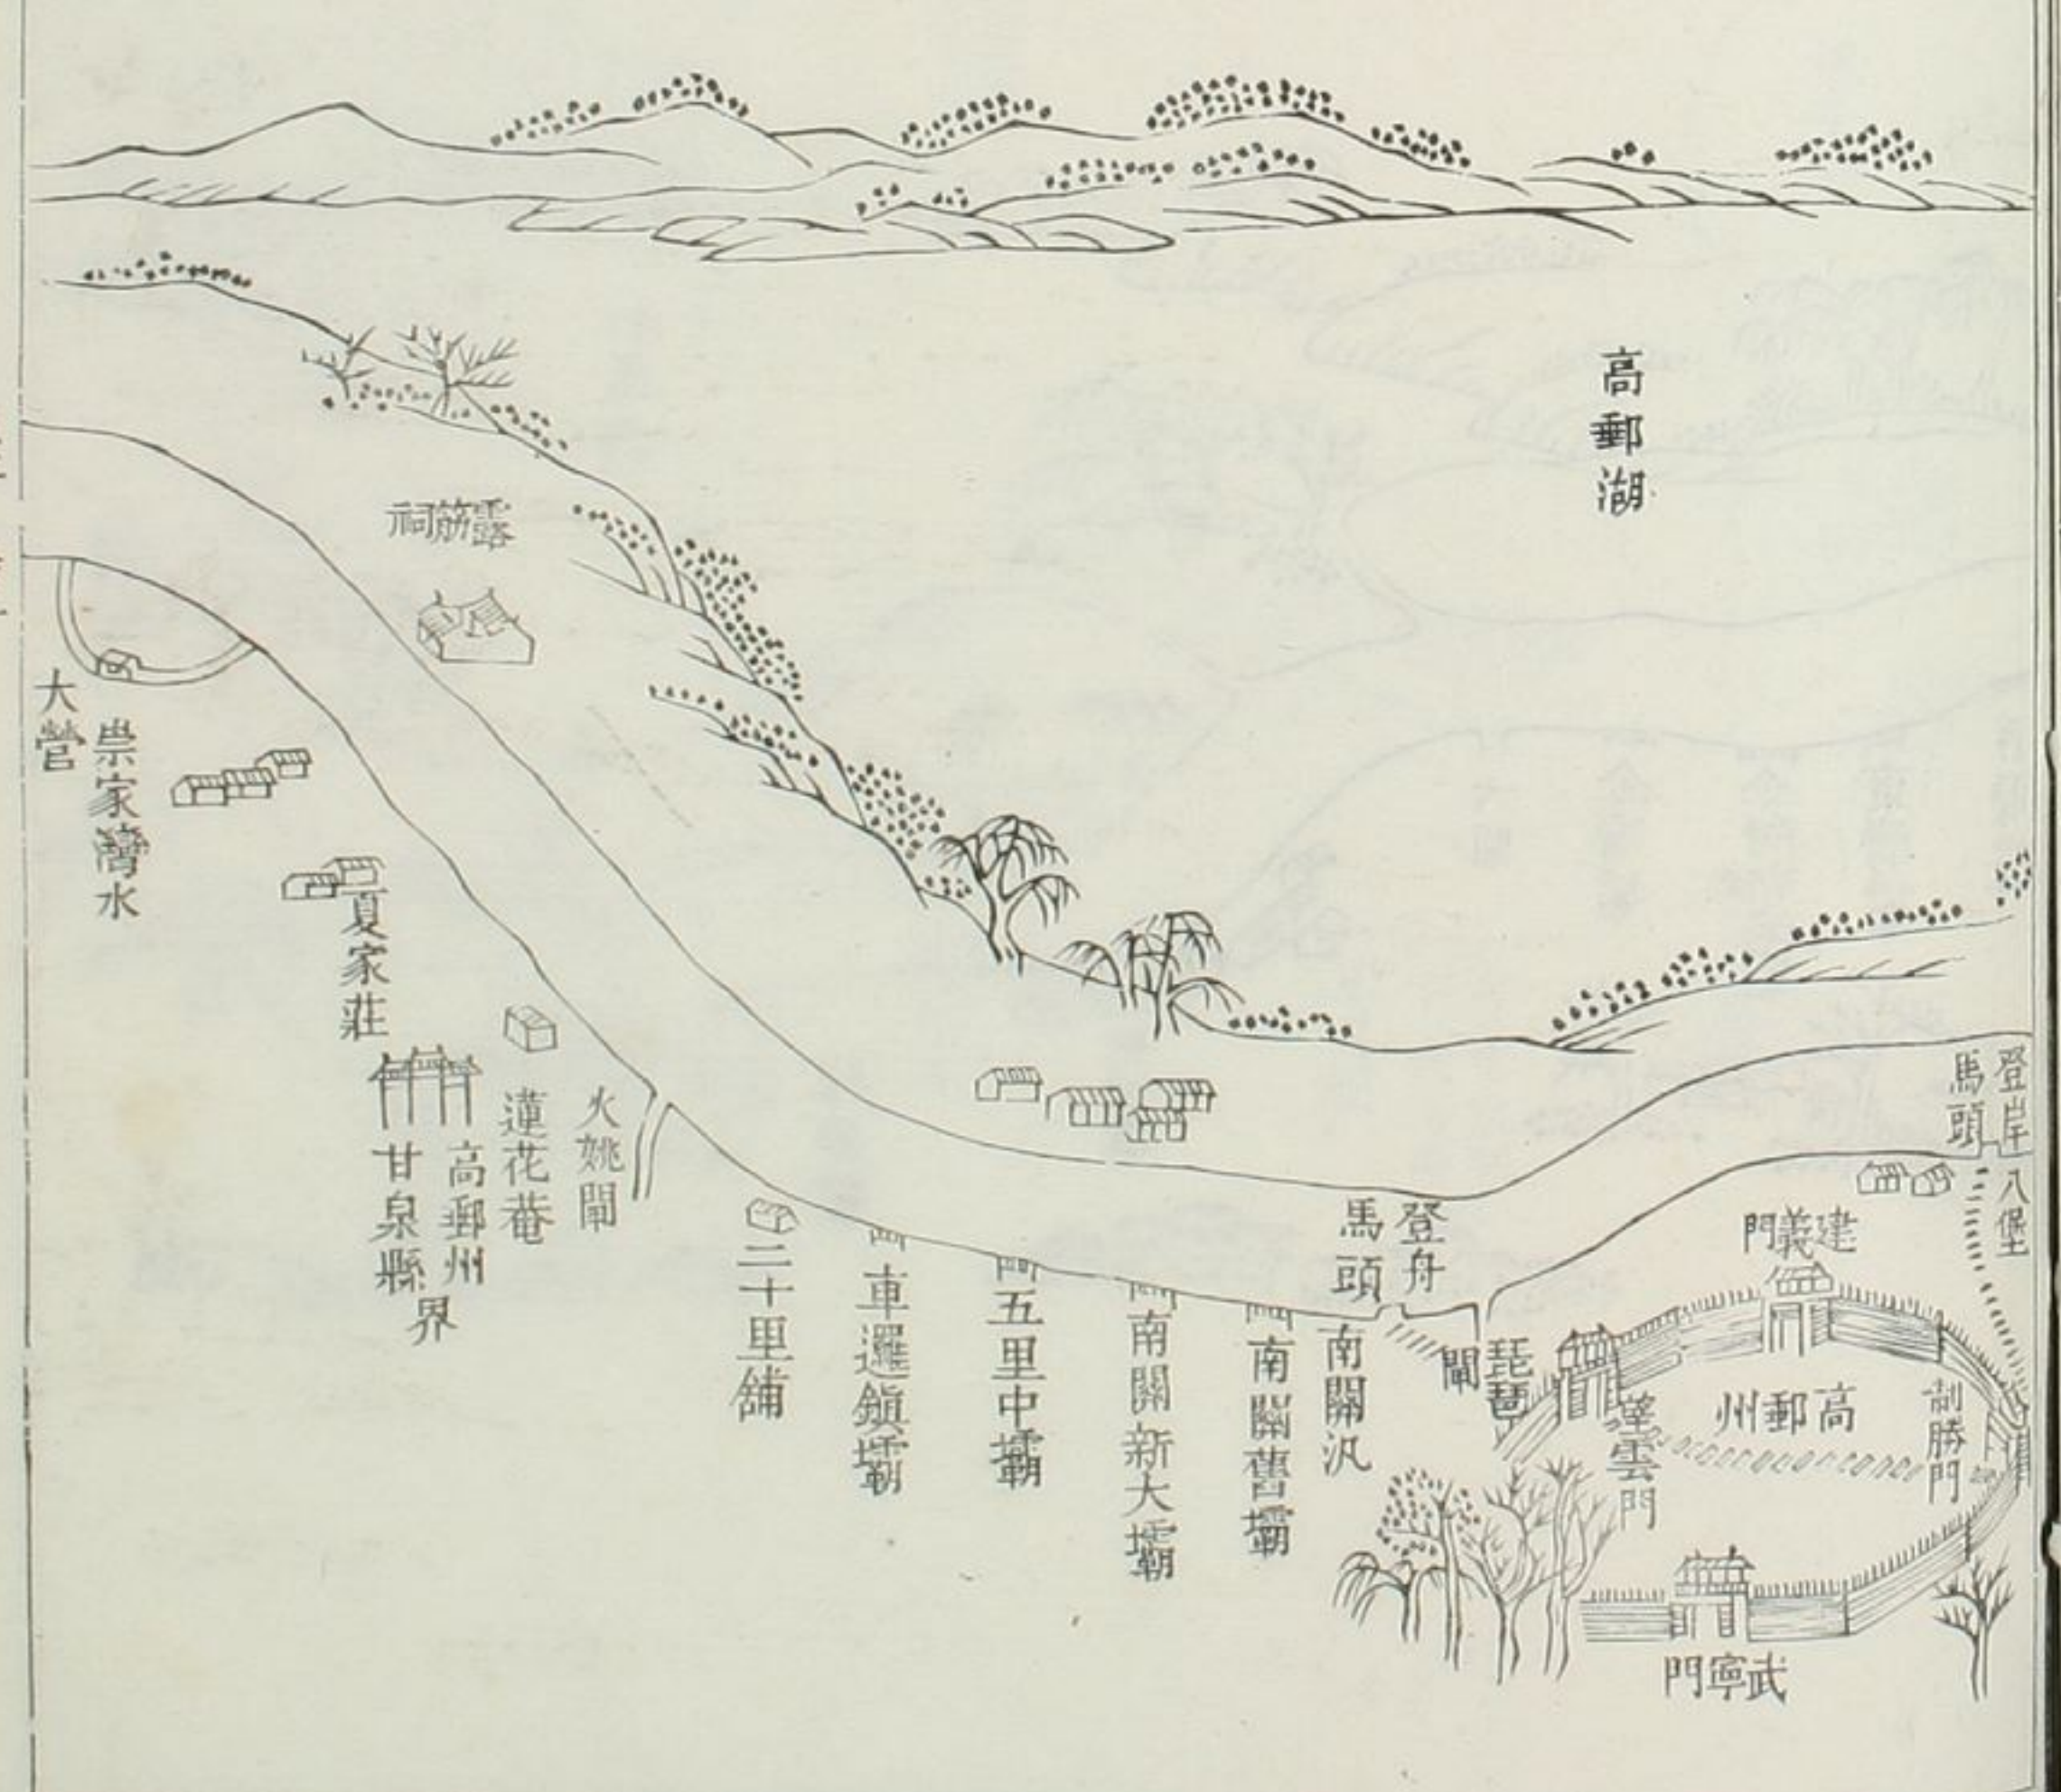 高郵湖
登岸
馬頭
八堡
建義門
高郵州
制勝門
望雲門
武寧門
琵琶
閘
登舟
馬頭
南關汛
南關舊壩
南關新大壩
五里中壩
車邏鎮壩
二十里舖
火姚閘
蓮花菴
高郵州
甘泉縣
界
夏家莊
露筋祠
崇家灣水
大營